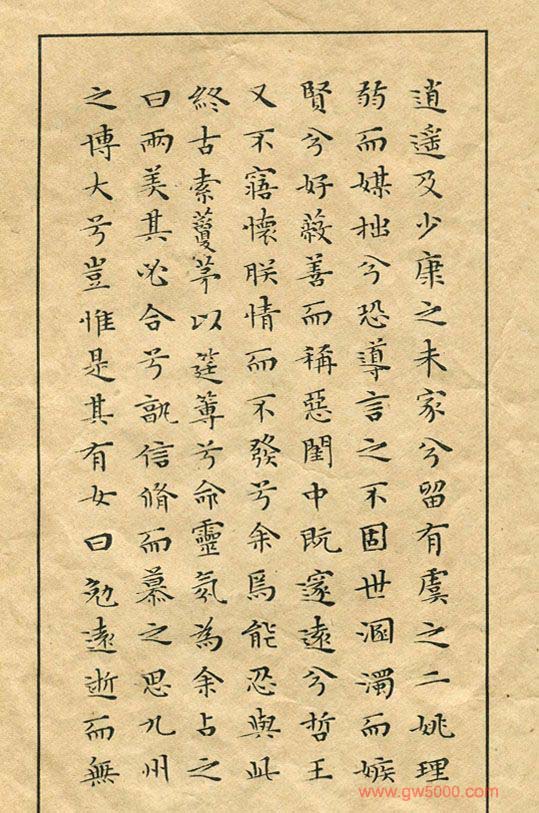 逍遥及少康之未家兮留有虞之二姚理
弱而媒拙兮恐導言之不固世溷濁而嫉
賢兮好蔽善而稱惡閨中既邃遠兮哲王
又不寤懷朕情而不發兮余焉能忍與此
終古索藑茅以筳篿兮命靈氛為余占之
曰兩美其必合兮孰信脩而慕之思九州
之博大兮豈惟是其有女曰勉遠逝而無
www.gw5000.com